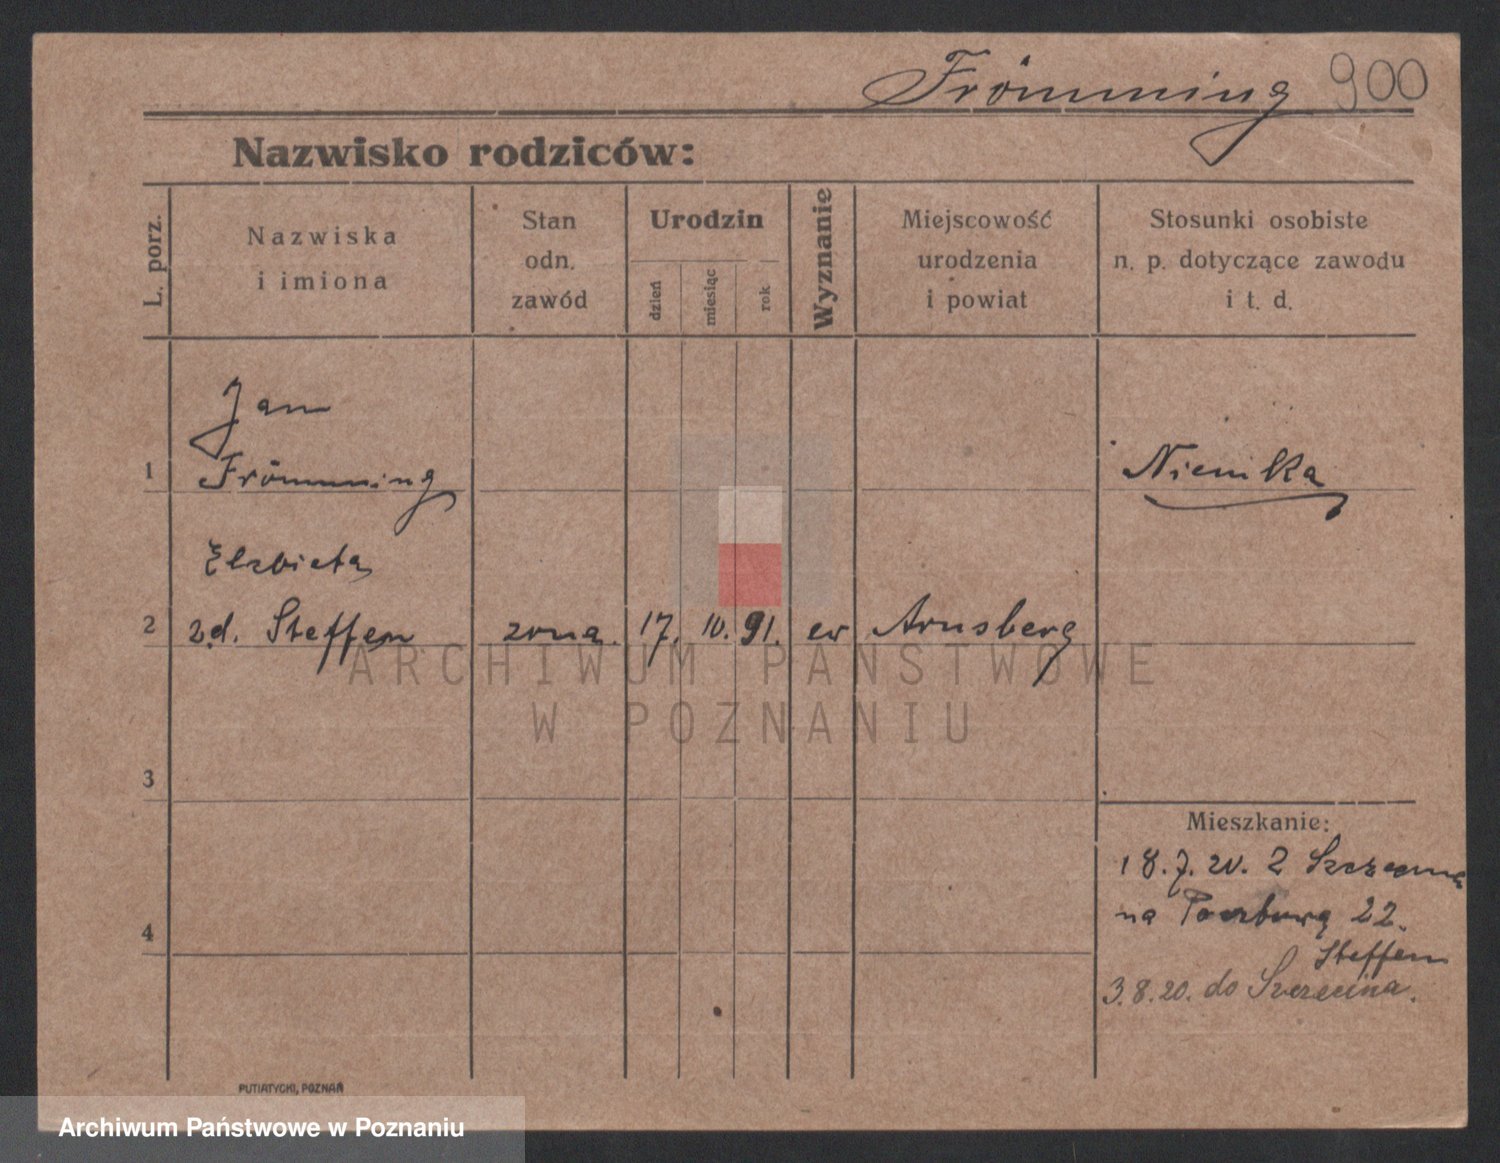 Frömming 900
Nazwisko rodziców:
L. porz.
Nazwiska
i imiona
Stan
odn.
zawód
Urodzin
dzień
miesiąc
rok
Wyznanie
Miejscowość
urodzenia
i powiat
Stosunki osobiste
n. p. dotyczące zawodu
i t. d.
Jan
1 Frömming Niemka
Elzbieta
2 zd. Steffen zona. 17. 10. 91. ew Arnsberg
ARCHIWUM PAŃSTWOWE
W POZNANIU
3
Mieszkanie:
18.7.20. z Szczecina
4 na 22.
Steffen
3.8.20. do Szczecina.
PUTIATYCKI, POZNAŃ
Archiwum Państwowe w Poznaniu